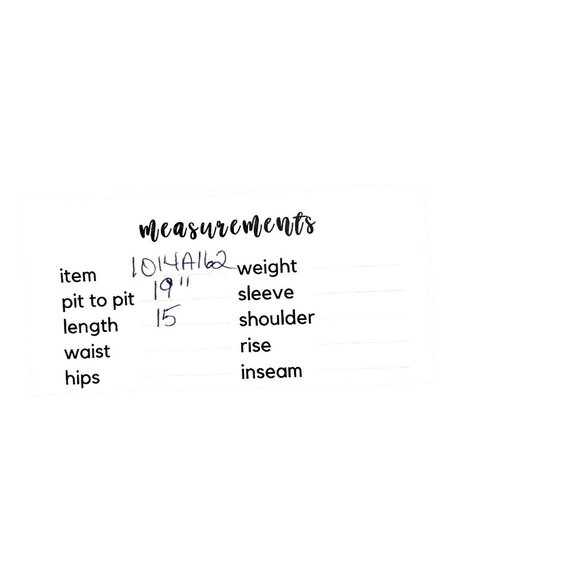 measurements
item 1014A162 weight
pit to pit 19" sleeve
length 15 shoulder
waist rise
hips inseam